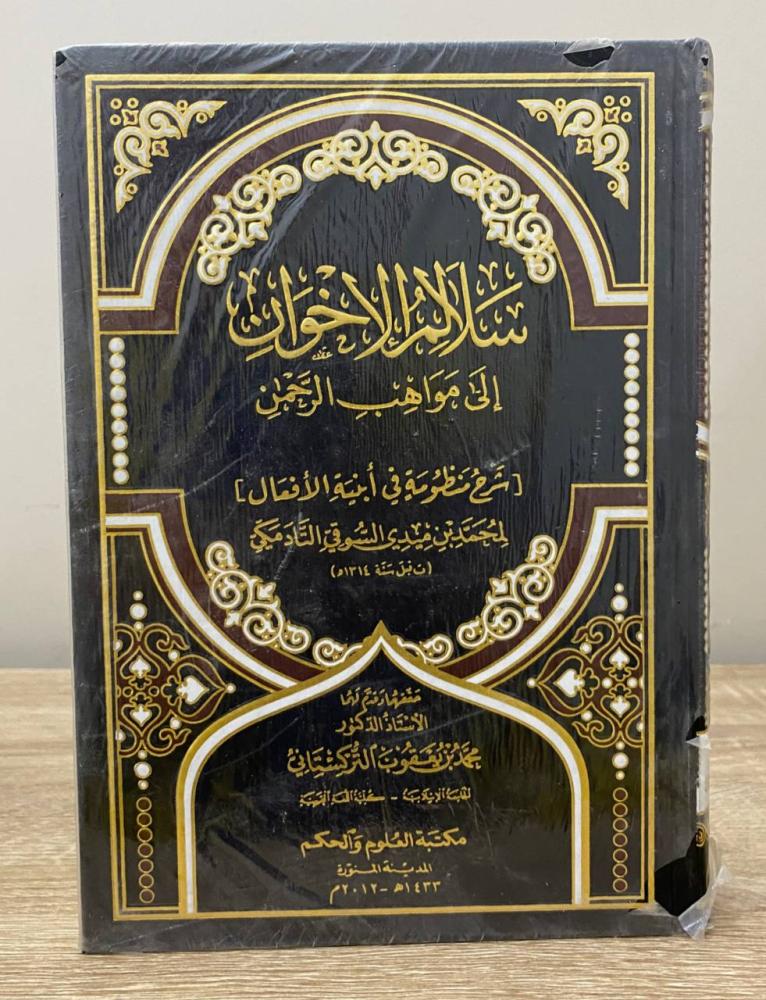 سَلَالِمُ الإِخْوَانِ
إِلَى مَوَاهِبِ الرَّحْمٰنِ
[شَرْحُ مَنْظُومَةٍ فِي أَبْنِيَةِ الأَفْعَالِ]
لِمُحَمَّدِ بْنِ مِيدِي السُّوقِي التَّادمَكِّي
(ت قبل سَنَة ١٣١٤هـ)
حَقَّقَهَا وَقَدَّمَ لَهَا
الأُسْتَاذُ الدُّكْتُور
مُحَمَّدُ بْنُ يَعْقُوبَ التُّرْكِسْتَانِيُّ
الجَامِعَة الإِسْلَامِيَّة - كُلِّيَّة اللُّغَة العَرَبِيَّة
مكتبة العلوم والحكم
المدينة المنورة
١٤٣٣هـ - ٢٠١٢م